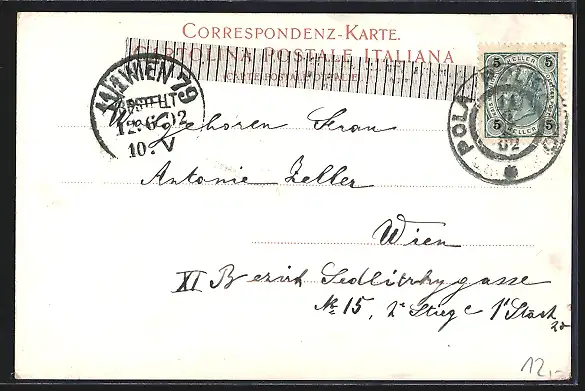 CORRESPONDENZ-KARTE.
CARTOLINA POSTALE ITALIANA
5 HELLER 5
5 HELLER 5
WIEN 79
BESTELLT
12. 6. 02
10. V
POLA
02
Wohlgeboren Frau
Antonie Zeller
Wien
XI Bezirk Sedlitzkygasse
No 15, 2e Stiege 1 Stock
12,-